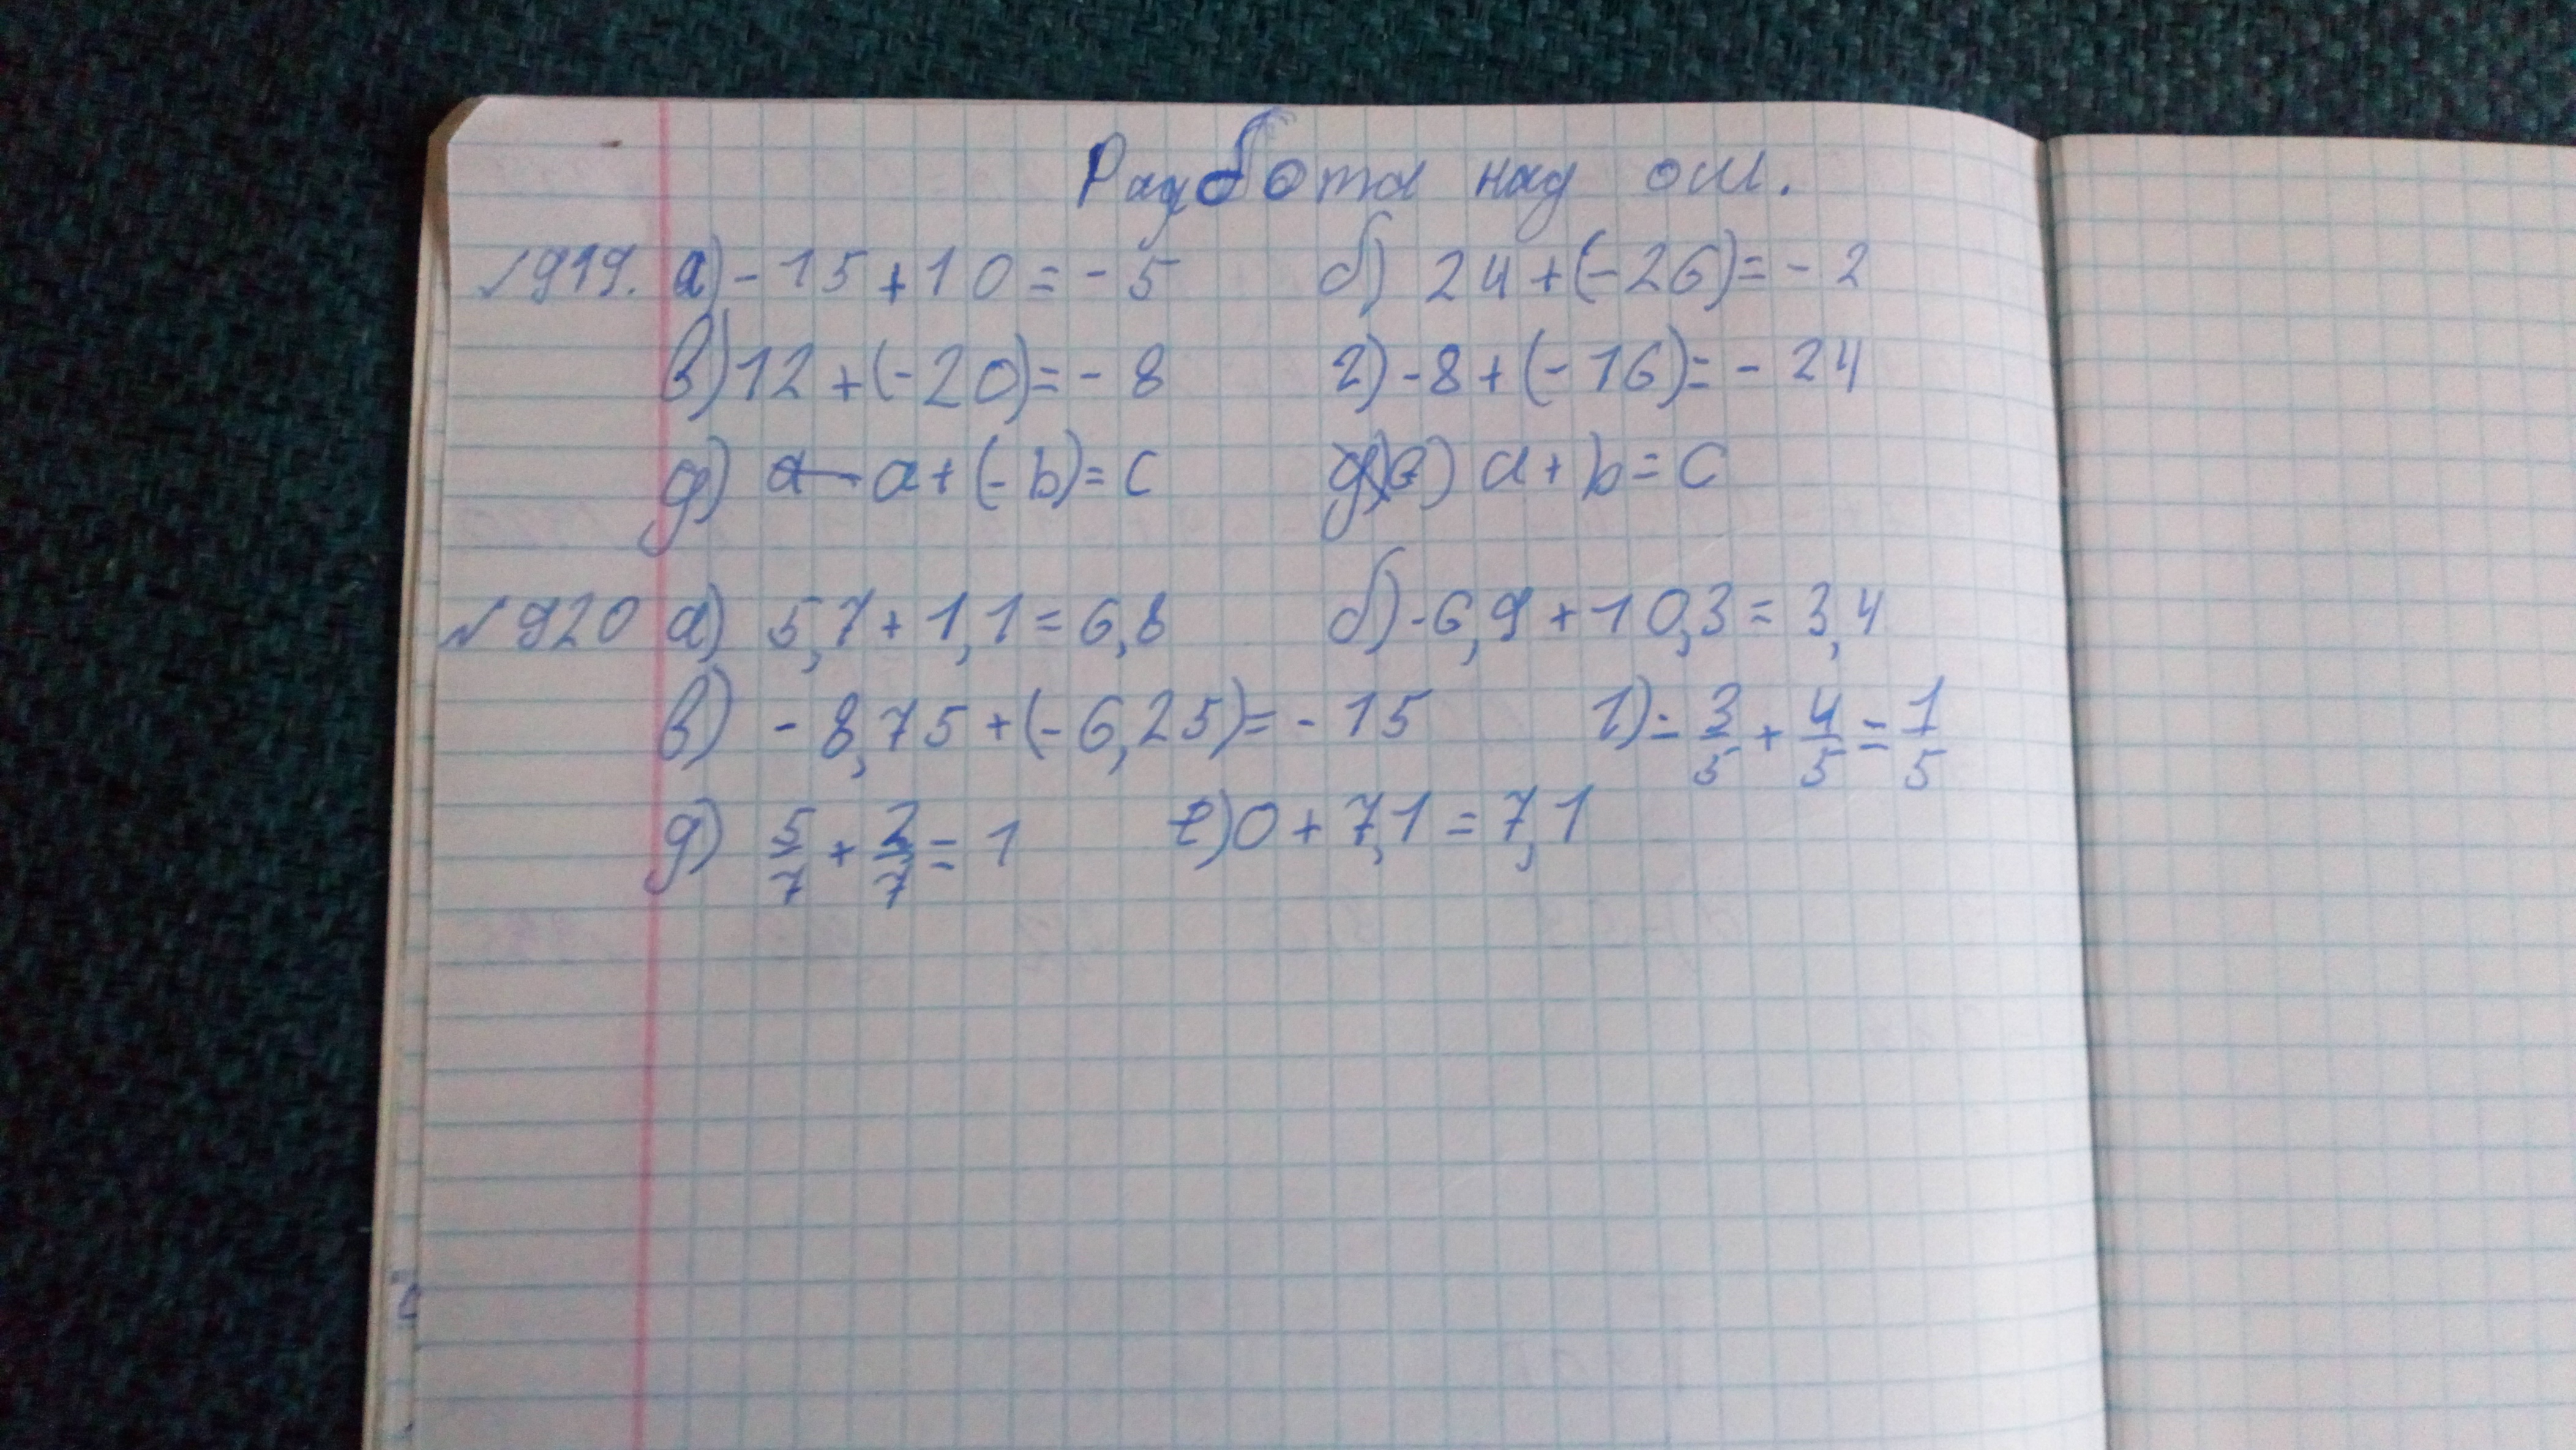 Работа над ош.
№919. а) -15+10=-5 б) 24+(-26)=-2
в) 12+(-20)=-8 г) -8+(-16)=-24
д) a+(-b)=c е) a+b=c
№920 а) 5,7+1,1=6,8 б) -6,9+10,3=3,4
в) -8,75+(-6,25)=-15 г) -3/5+4/5=1/5
д) 5/7+2/7=1 е) 0+7,1=7,1